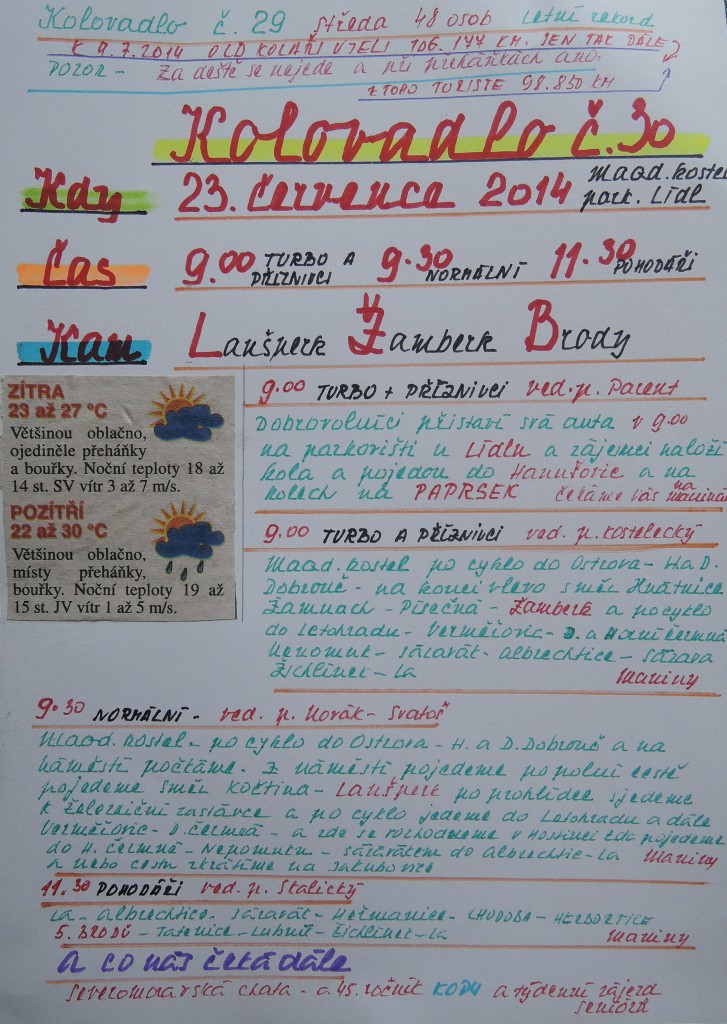 Kolovadlo č. 29 středa 48 osob Letní rekord
K 9.7.2014 OLD KOLAŘI UJELI 106.177 KM. JEN TAK DÁLE
POZOR - Za deště se nejede a při přeháňkách ano.
Z TOHO TURISTE 98.850 KM
Kolovadlo č. 30
Kdy 23. července 2014 Magd. kostel
park. Lídl
Čas 9.00 TURBO A PŘÍZNIVCI 9.30 NORMÁLNÍ 11.30 POHODÁŘI
Kam Lanšperk Žamberk Brody
ZÍTRA
23 až 27 °C
Většinou oblačno,
ojediněle přeháňky
a bouřky. Noční teploty 18 až
14 st. SV vítr 3 až 7 m/s.
POZÍTŘÍ
22 až 30 °C
Většinou oblačno,
místy přeháňky,
bouřky. Noční teploty 19 až
15 st. JV vítr 1 až 5 m/s.
9.00 TURBO + PŘÍZNIVCI ved. p. Parent
Dobrovolníci přistaví svá auta v 9.00
na parkovišti u Lídlu a zájemci naloží
kola a pojedou do Hanušovic a na
kolech na PAPRSEK čekáme vás na
9.00 TURBO A PŘÍZNIVCI ved. p. Kostelecký
Magd. kostel po cyklo do Ostrova - H a D.
Dobrouč - na konci vlevo směr Hnátnice
Žampach - Písečná - Žamberk a po cyklo
do Letohradu - Verměřovic - D. a Horní Čermná
Nepomuk - sázavát - Albrechtice - Sázava
Žichlínek - La Mariny
9.30 NORMÁLNÍ - ved. p. Novák - Svatoš
Magd. kostel - po cyklo do Ostrova - H. a D. Dobrouč a na
náměstí počkáme. Z náměstí pojedeme po polní cestě
pojedeme směr Koština - Lanšperk po prohlídce sjedeme
k železniční zastávce a po cyklo jedeme do Letohradu a dále
Verměřovic - D. Čermná - a zde se rozhodneme v hostinci zda pojedeme
do H. Čermné - Nepomuku - do Albrechtic - La Mariny
a nebo cestu zkrátíme na Jakubovice
11.30 POHODÁŘI ved. p. Skalický
La - Albrechtice - sázavát - Heřmanice - CHUDOBA - HERBORTICE
5. BRODŮ - Tatenice - Lubník - Žichlínek - La Mariny
A co nás čeká dále
Severomoravská chata - a 45. ročník KOPU a týdenní zájezd
seniorů